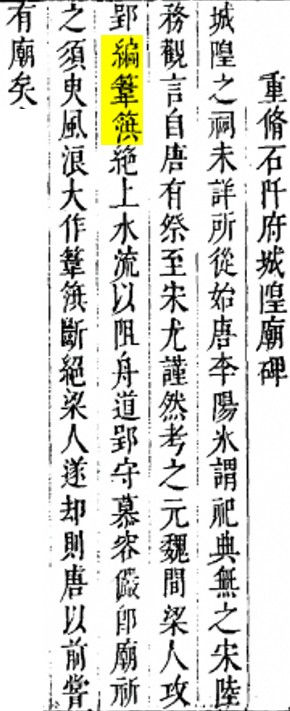 重脩石阡府城隍廟碑
城隍之祠未詳所從始唐李陽氷謂祀典無之宋陸
務觀言自唐有祭至宋尤謹然考之元魏間梁人攻
郢編葦篊絶上水流以阻舟道郢守慕容儼卽廟祈
之須臾風浪大作葦篊斷絶梁人遂却則唐以前嘗
有廟矣